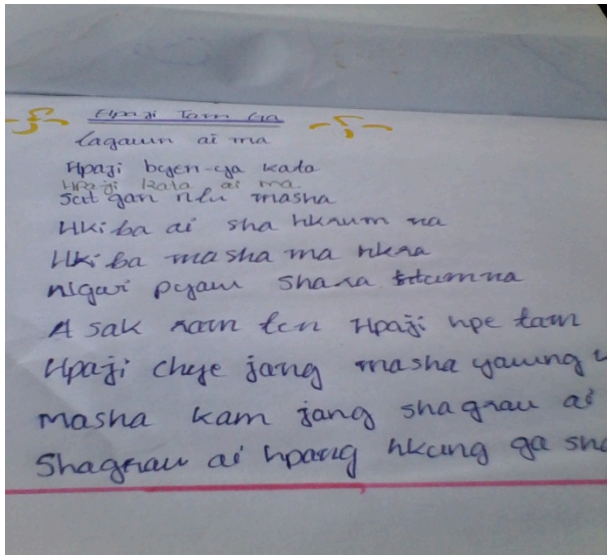 Hpaji Tam Ga
Lagawn ai ma
Hpaji byen-ya kata
Hpaji kata ai ma.
Sut gan nlu masha
Hkiba ai sha hkrum na
Hkiba masha ma hkra
nigawi pyaw shara tam na
A sak ram ten Hpaji hpe tam
Hpaji chye jang masha yawng
masha kam jang shagrau ai
Shagrau ai hpang hkang ga sha